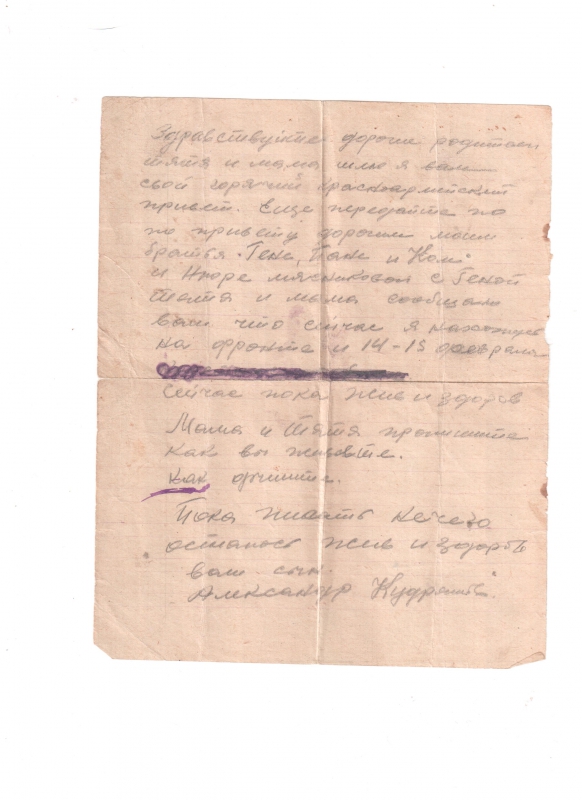 Здравствуйте дороги родители
тятя и мама шлю я вам
свой горячий красноармейский
привет. Еще передайте по
по привету дорогим моим
братья Гене, Ване и Коле
и Нюре мясниковой с Геной
тятя и мама сообщаю
вам что сейчас я нахожусь
на фронте и 14-15 февраля
сейчас пока жив и здоров
Мама и тятя пропишите
как вы живете.
как
Пока писать нечего
остаюсь жив и здоров
ваш сын.
Александр